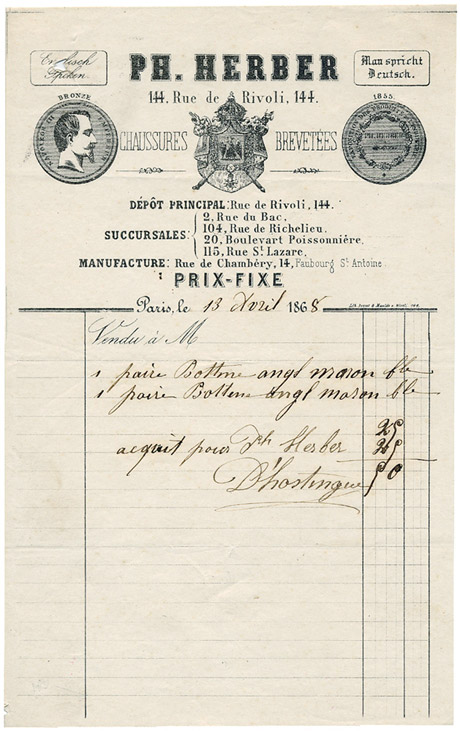 English
Spoken.
PH. HERBER
Man spricht
Deutsch.
144, Rue de Rivoli, 144.
BRONZE
1855.
NAPOLEON III EMPEREUR
CHAUSSURES
BREVETÉES
PH. HERBER
DÉPÔT PRINCIPAL: Rue de Rivoli, 144.
SUCCURSALES:
2, Rue du Bac.
104, Rue de Richelieu.
20, Boulevart Poissonnière.
115, Rue St Lazare.
MANUFACTURE: Rue de Chambéry, 14, Faubourg St Antoine.
PRIX-FIXE
Paris, le 13 Avril 1868
Vendu à M
1 paire Bottine angl maron ble
1 paire Bottine angl maron ble
25
acquit pour Ph Herber 25
D'hostingue 50